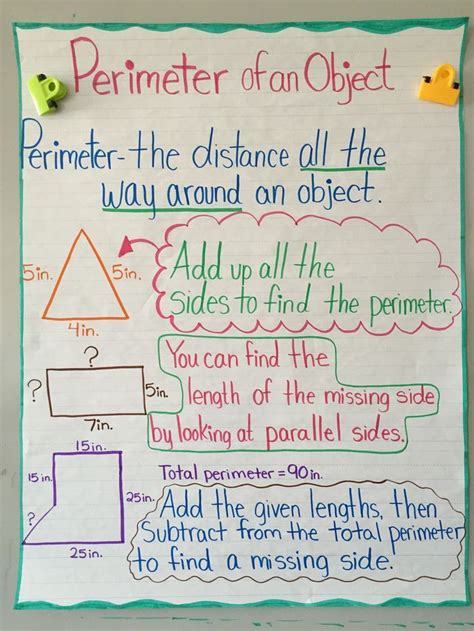 Perimeter of an Object
Perimeter- the distance all the
way around an object.
5in.
5in.
4in.
Add up all the
sides to find the perimeter.
?
?
5in.
7in.
You can find the
length of the missing side
by looking at parallel sides.
15in.
15in.
25in.
?
25in.
Total perimeter = 90in.
Add the given lengths, then
subtract from the total perimeter
to find a missing side.